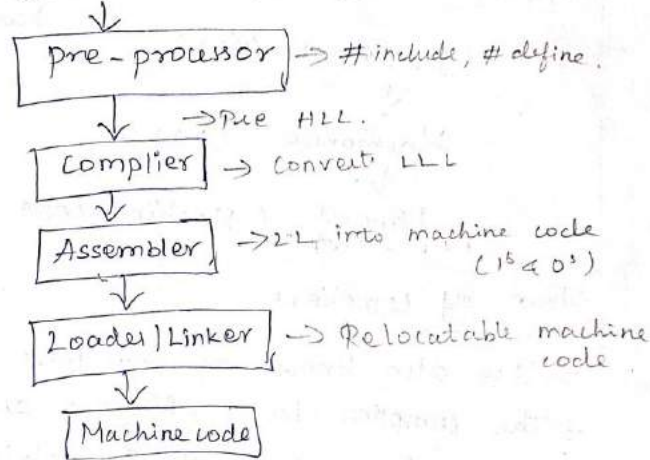 pre-processor → #include, #define.
→ Pue HLL.
Complier → Convert LLL
Assembler → LL into machine code
(1s & 0s)
Loader/Linker → Relocatable machine
code.
Machine code